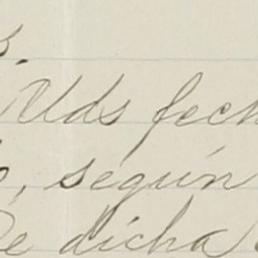 s.
Uds fech
, según
de dicha